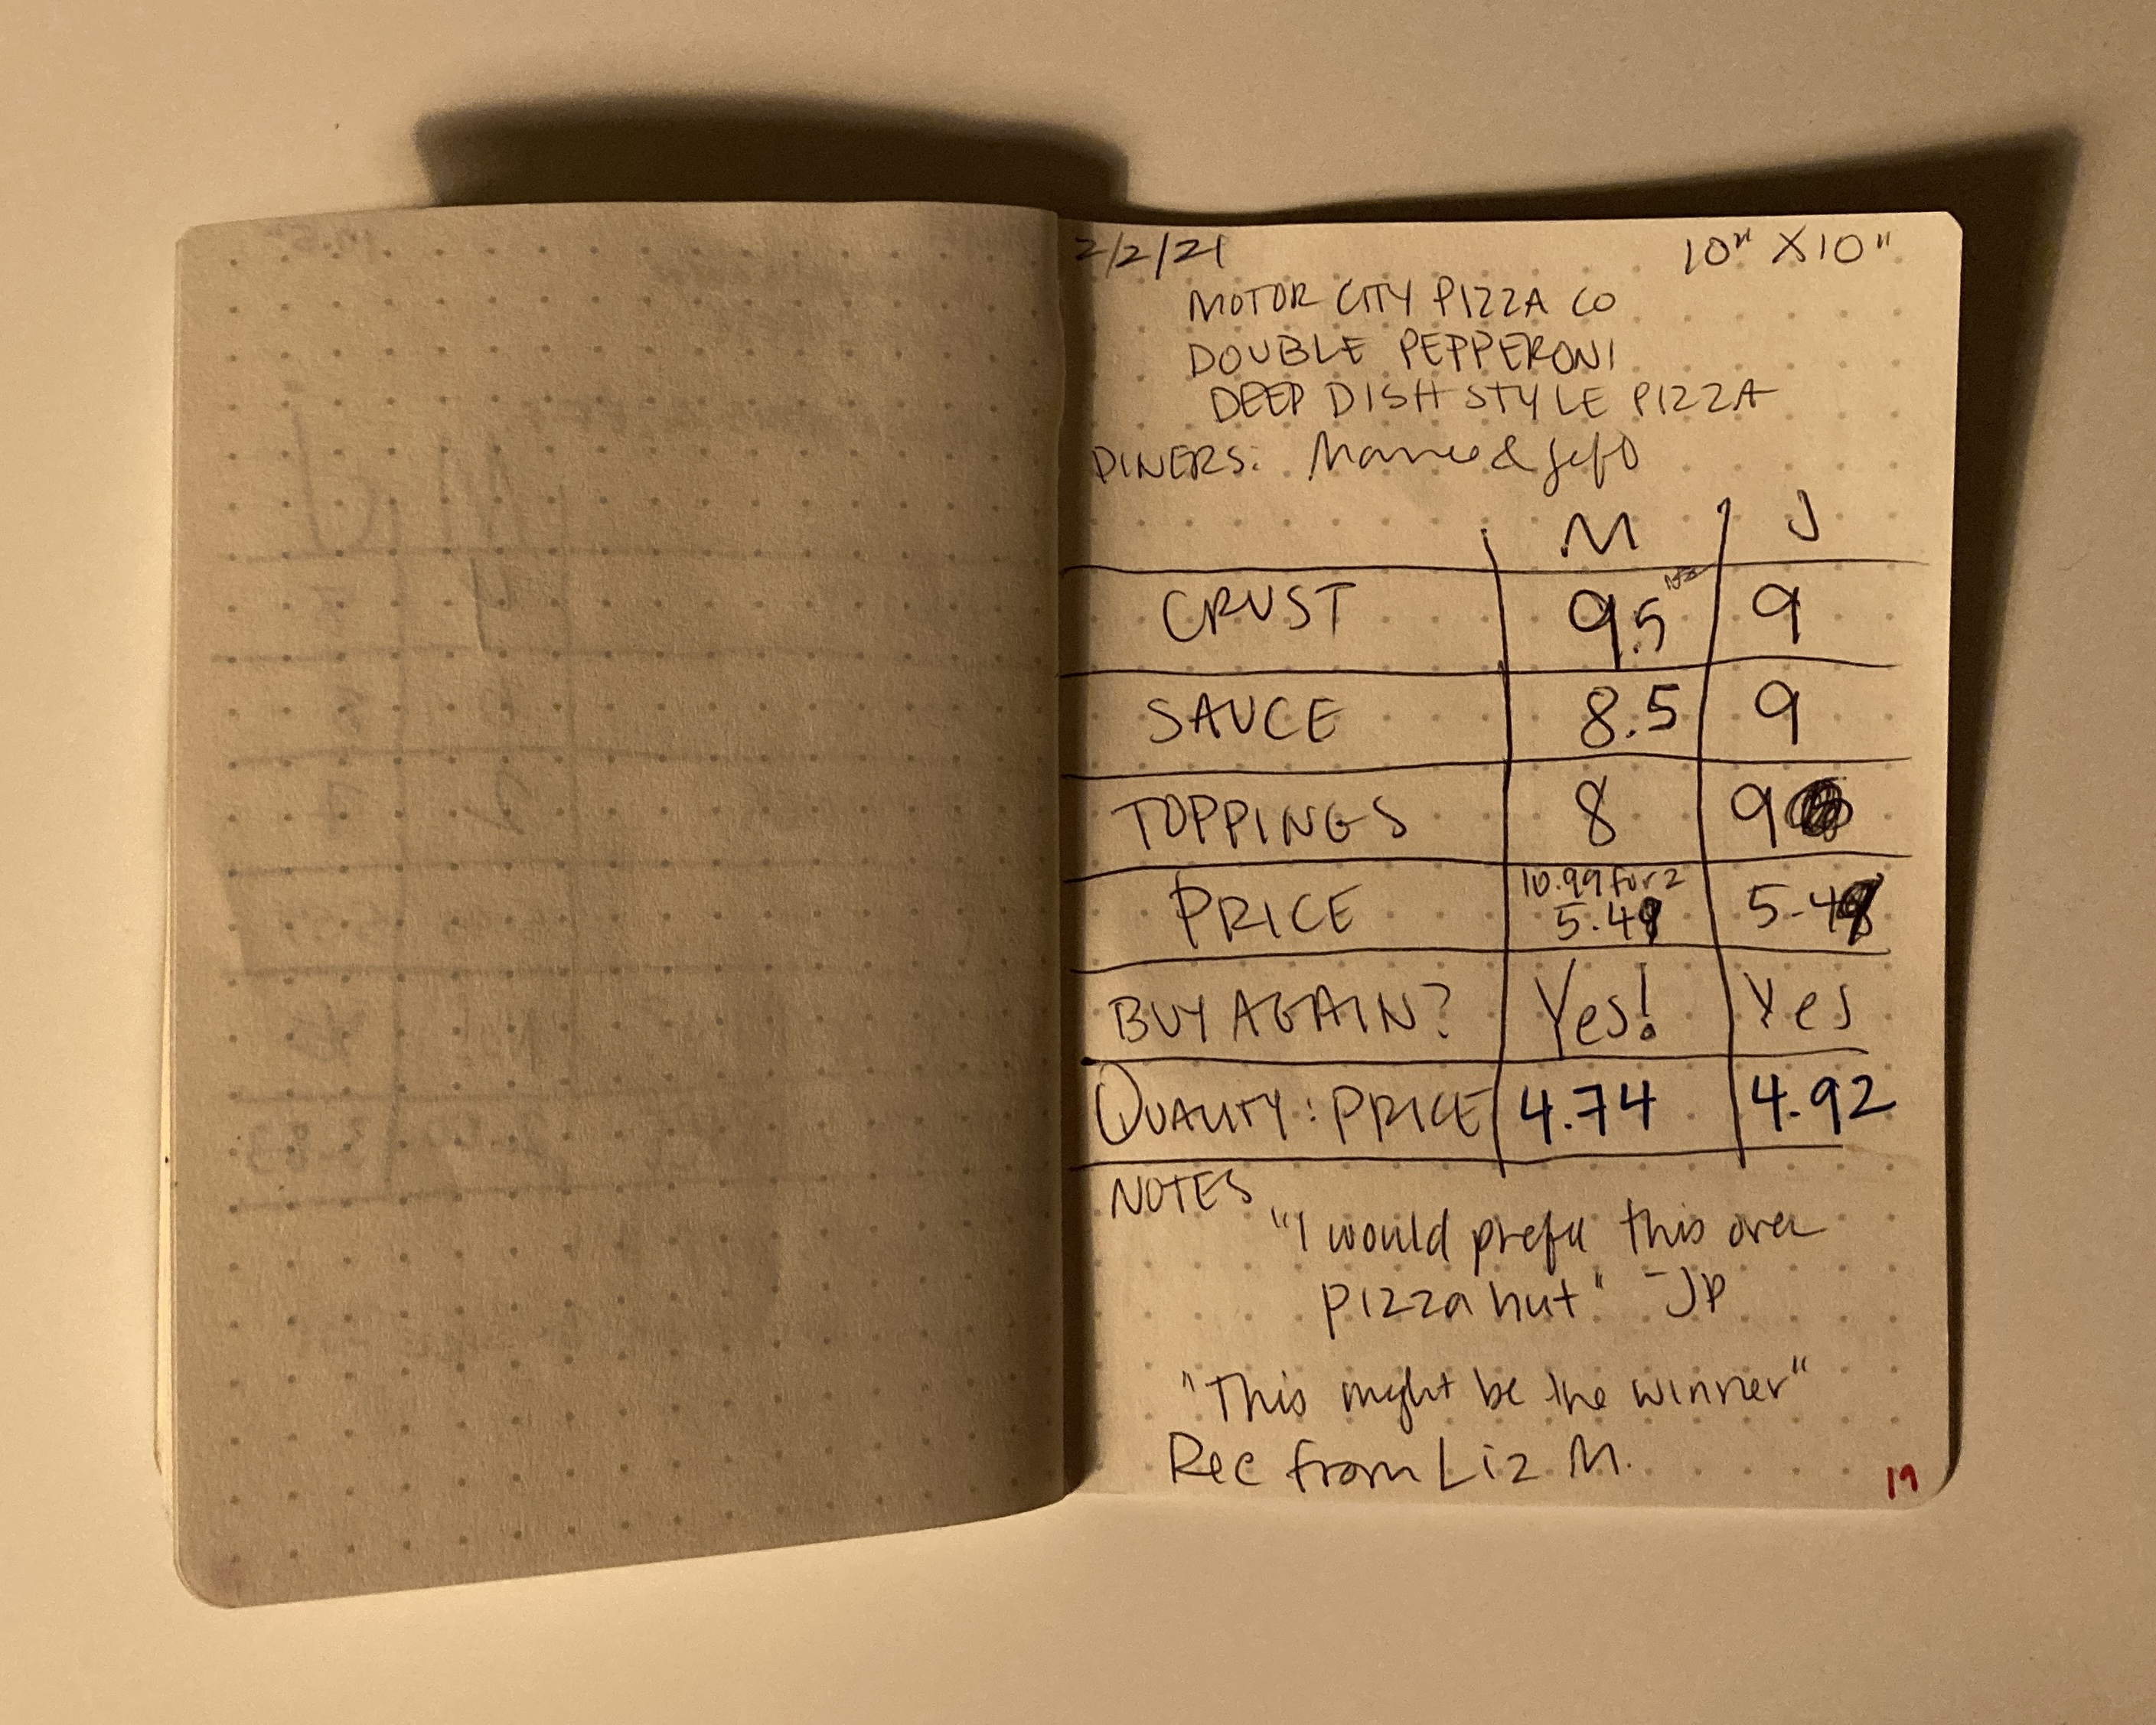 2/2/21 10" X10"
MOTOR CITY PIZZA CO
DOUBLE PEPPERONI
DEEP DISH STYLE PIZZA
DINERS: &
M J
CRUST 9.5 9
SAUCE 8.5 9
TOPPINGS 8 9
PRICE 10.99 for 2 5.49 5.49
BUY AGAIN? Yes! Yes
QUALITY: PRICE 4.74 4.92
NOTES
"I would prefer this over
pizza hut" -JP
"This might be the winner"
Rec from Liz M.
19